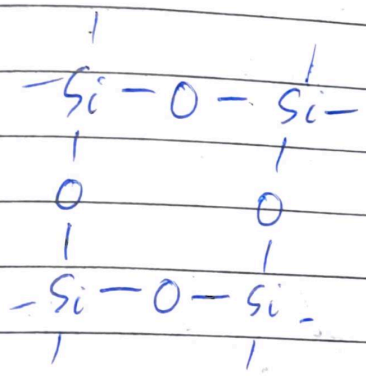 -Si-O-Si-
O O
-Si-O-Si-